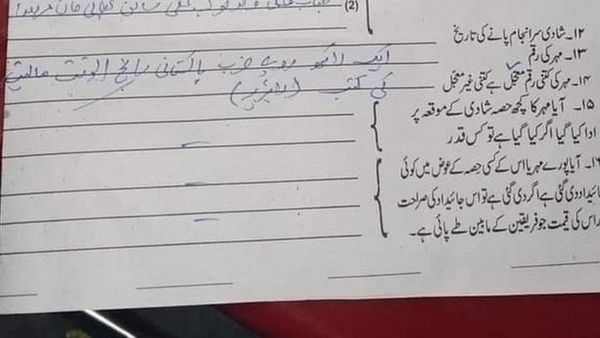 (2)
۱۲۔ شادی سرانجام پانے کی تاریخ
۱۳۔ مہر کی رقم
ایک لاکھ روپے پاکستانی رائج الوقت مالیتی
۱۴۔ مہر کی کتنی رقم معجّل ہے کتنی غیر معجّل
کی کتب
۱۵۔ آیا مہر کا کچھ حصہ شادی کے موقعہ پر
ادا کیا گیا اگر کیا گیا ہے تو کس قدر
۱۶۔ آیا پورے مہر یا اس کے کسی حصہ کے عوض میں کوئی
جائیداد دی گئی ہے اگر دی گئی ہے تو اس جائیداد کی صراحت
اور اس کی قیمت جو فریقین کے مابین طے پائی ہے۔